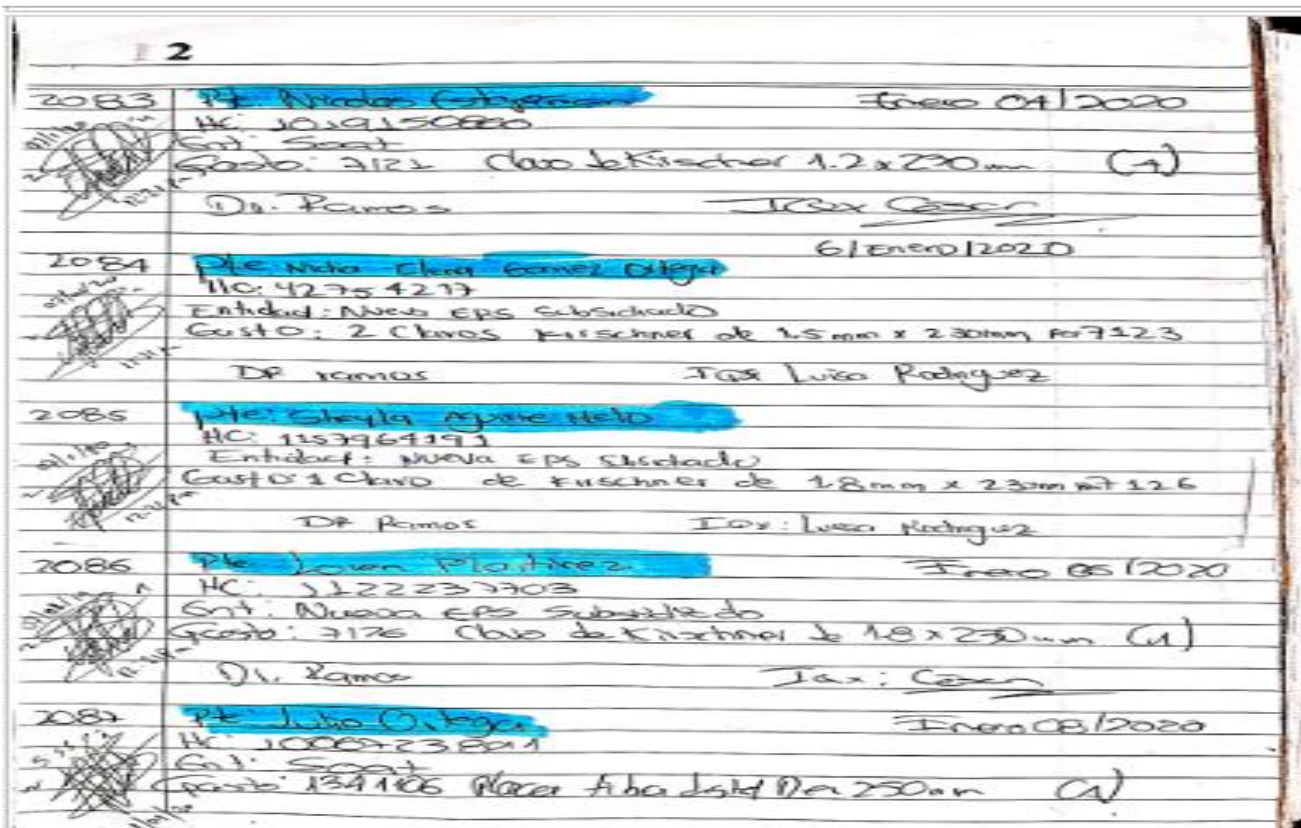 2
2083 Pte Nicolas Enero 04/2020
HC: 1019150880
Ent: Soat
Gasto: 7121 Clavo de Kirschner 1.2 x 230 mm (1)
Dr. Ramos IQx Cesar
6/Enero/2020
2084 Pte Clara Gomez Ortega
HC: 42754217
Entidad: Nueva EPS Subsidiado
Gasto: 2 Clavos Kirschner de 1.5 mm x 230mm 7123
DR ramos IQx Luisa Rodriguez
2085 pte: Sheyla Aguirre Melo
HC: 1157964191
Entidad: Nueva EPS
Gasto: 1 Clavo de Kirschner de 1.8mm x 230mm 7126
DR Ramos IQx: Luisa Rodriguez
2086 Pte Loren Martinez Enero 06/2020
HC: 1122237703
Ent: Nueva EPS Subsidiado
Gasto: 7126 Clavo de Kirschner de 1.8 x 230 mm (1)
Dr. Ramos IQx: Cesar
2087 Pte Julio Ortega Enero 08/2020
HC:
Ent: Soat
Gasto: 1341106 Placa tibia distal Der 250mm (1)